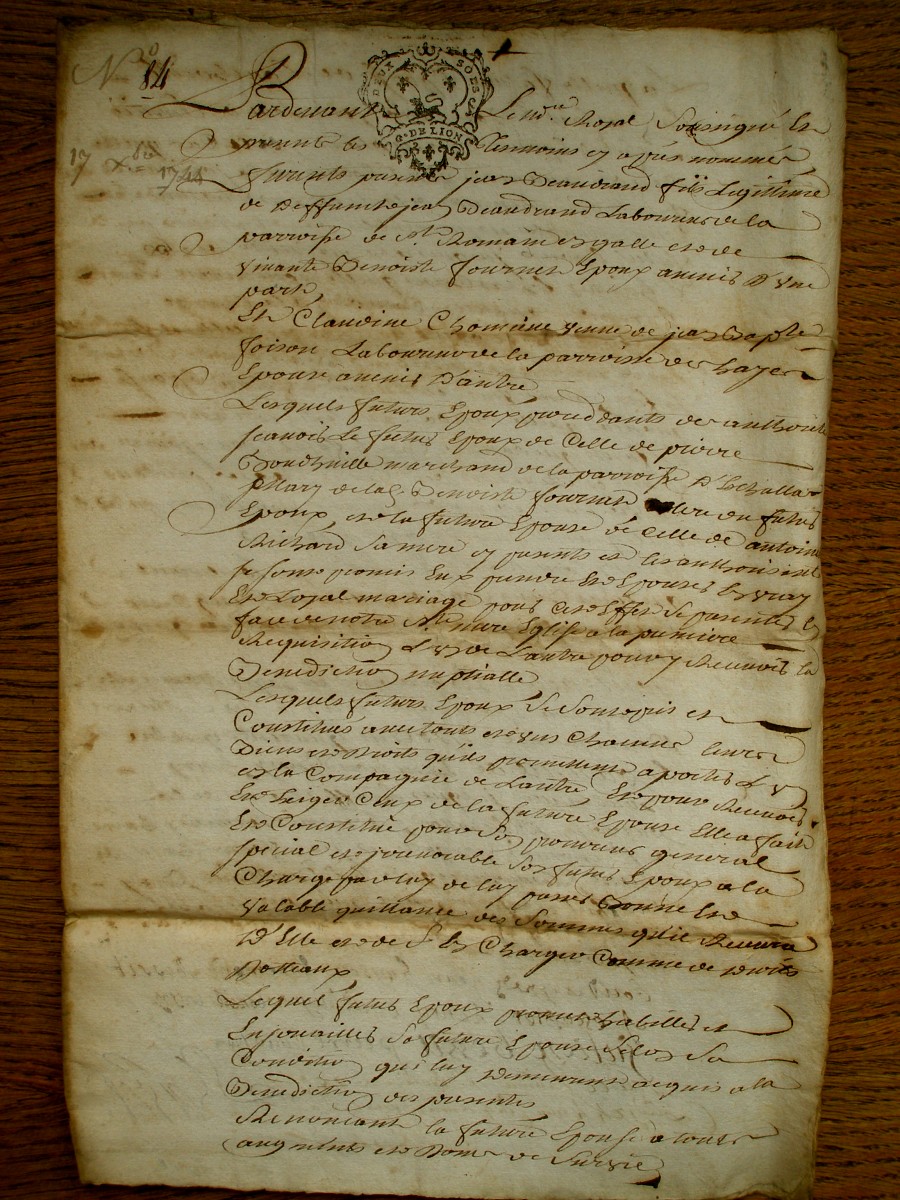 No 84
DEUX SOLS
G. DE LION
17 xbre 1744
Pardevant Le nore Royal Soussigné et
presents les tesmoins cy apres nommés
furent presents jean Beaudrand fils Legittime
de deffunt jean Beaudrand Laboureur de la
parroisse de st Romain en galle et de
vivante Benoiste fournet Epoux avenir d'une
part
Et Claudine Chomienne veuve de jean Baptte
foison Laboureur de la parroisse des hayes
Epouse avenir d'autre
Lesquels futurs Epoux proceddants de authorité
scavoir Le futur Epoux de Celle de pierre
marchand de la parroisse d'Echalla
Mary de lad. Benoiste fournet mere du futur
Epoux, et la future Epouse de Celle de antoine
Richard sa mere cy presents et les authorisant
se sont promis Eux prendre et Epouser En vray
et Loyal mariage pour cet effet se presenter En
face de notre Ste mere Eglise a la premiere
Requisition L'un de L'autre pour y Recevoir la
Benediction nuptialle
Lesquels futurs Epoux Se Sont pris et
Constitués avec touts et uns Chacuns leurs
Biens et droits qu'ils promettent aporter L'un
en la Compagnie de Lautre Et pour Recevoir
Et Exiger Ceux de la future Epouse Elle a fait
Et Constitué pour Son procureur general
special et jrrevocable Sond futur Epoux a la
Charge par luy de luy passer Bonne et
valable quittance des Sommes qu'il Recevra
d'Elle et de S'En Charger Comme de deniers
Dottaux
Lequel futur Epoux promet habiller et
Enjoailler Sa future Epouse Selon Sa
Condition qui luy demeurent acquis a la
Benediction des presentes
Renoncant la future Epouse a toute
augments et Dons de Survie